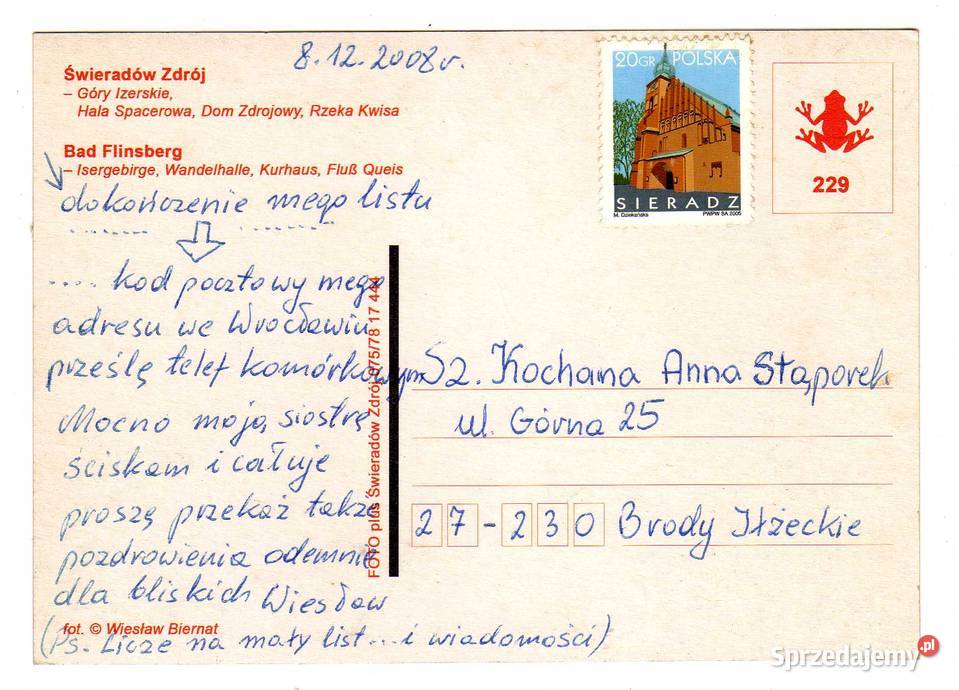 8.12.2008r.
Świeradów Zdrój
– Góry Izerskie,
Hala Spacerowa, Dom Zdrojowy, Rzeka Kwisa
Bad Flinsberg
– Isergebirge, Wandelhalle, Kurhaus, Fluß Queis
dokończenie mego listu
.... kod pocztowy mego
adresu we Wrocławiu
prześlę telef komórkowym
Mocno moją siostrę
ściskam i całuje
proszę przekaż także
pozdrowienia odemnie
dla bliskich Wiesław
fot. © Wiesław Biernat
(Ps. Licze na mały list... i wiadomości)
FOTO plus Świeradów Zdrój 075/78 17 444
20GR POLSKA
SIERADZ
M. Dziekańska PWPW SA 2005
229
Sz. Kochana Anna Stąporek
ul. Górna 25
27-230 Brody Iłżeckie
Sprzedajemy.pl